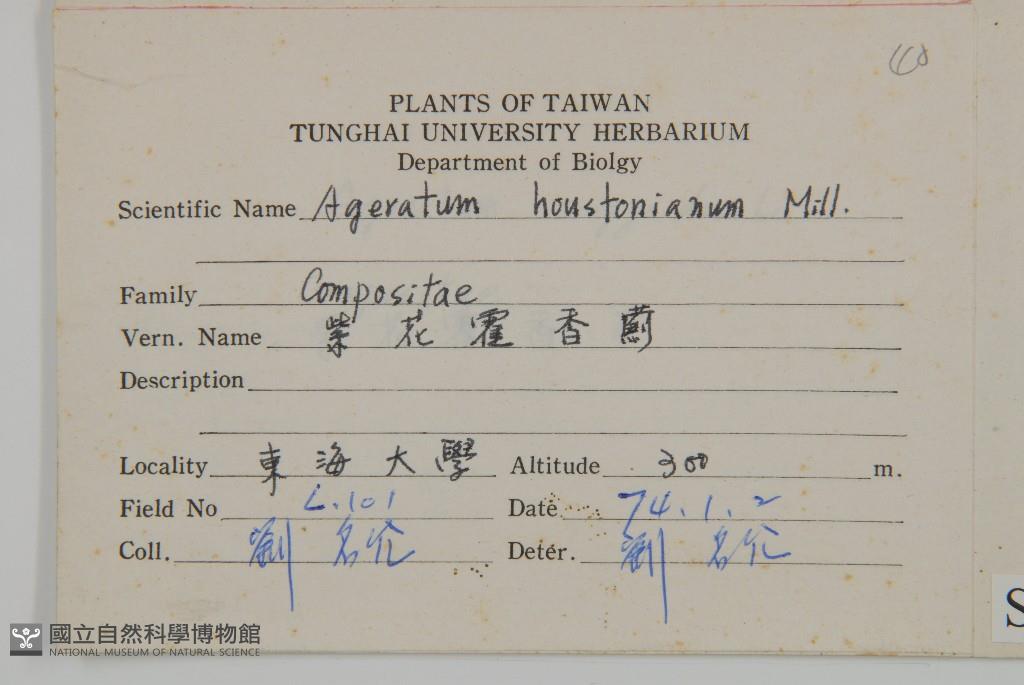 PLANTS OF TAIWAN
TUNGHAI UNIVERSITY HERBARIUM
Department of Biolgy
Scientific Name Ageratum houstonianum Mill.
Family Compositae
Vern. Name 紫花霍香薊
Description
Locality 東海大學 Altitude 300 m.
Field No L.101 Date 74.1.2
Coll. 劉名介 Deter. 劉名介
S
國立自然科學博物館
NATIONAL MUSEUM OF NATURAL SCIENCE